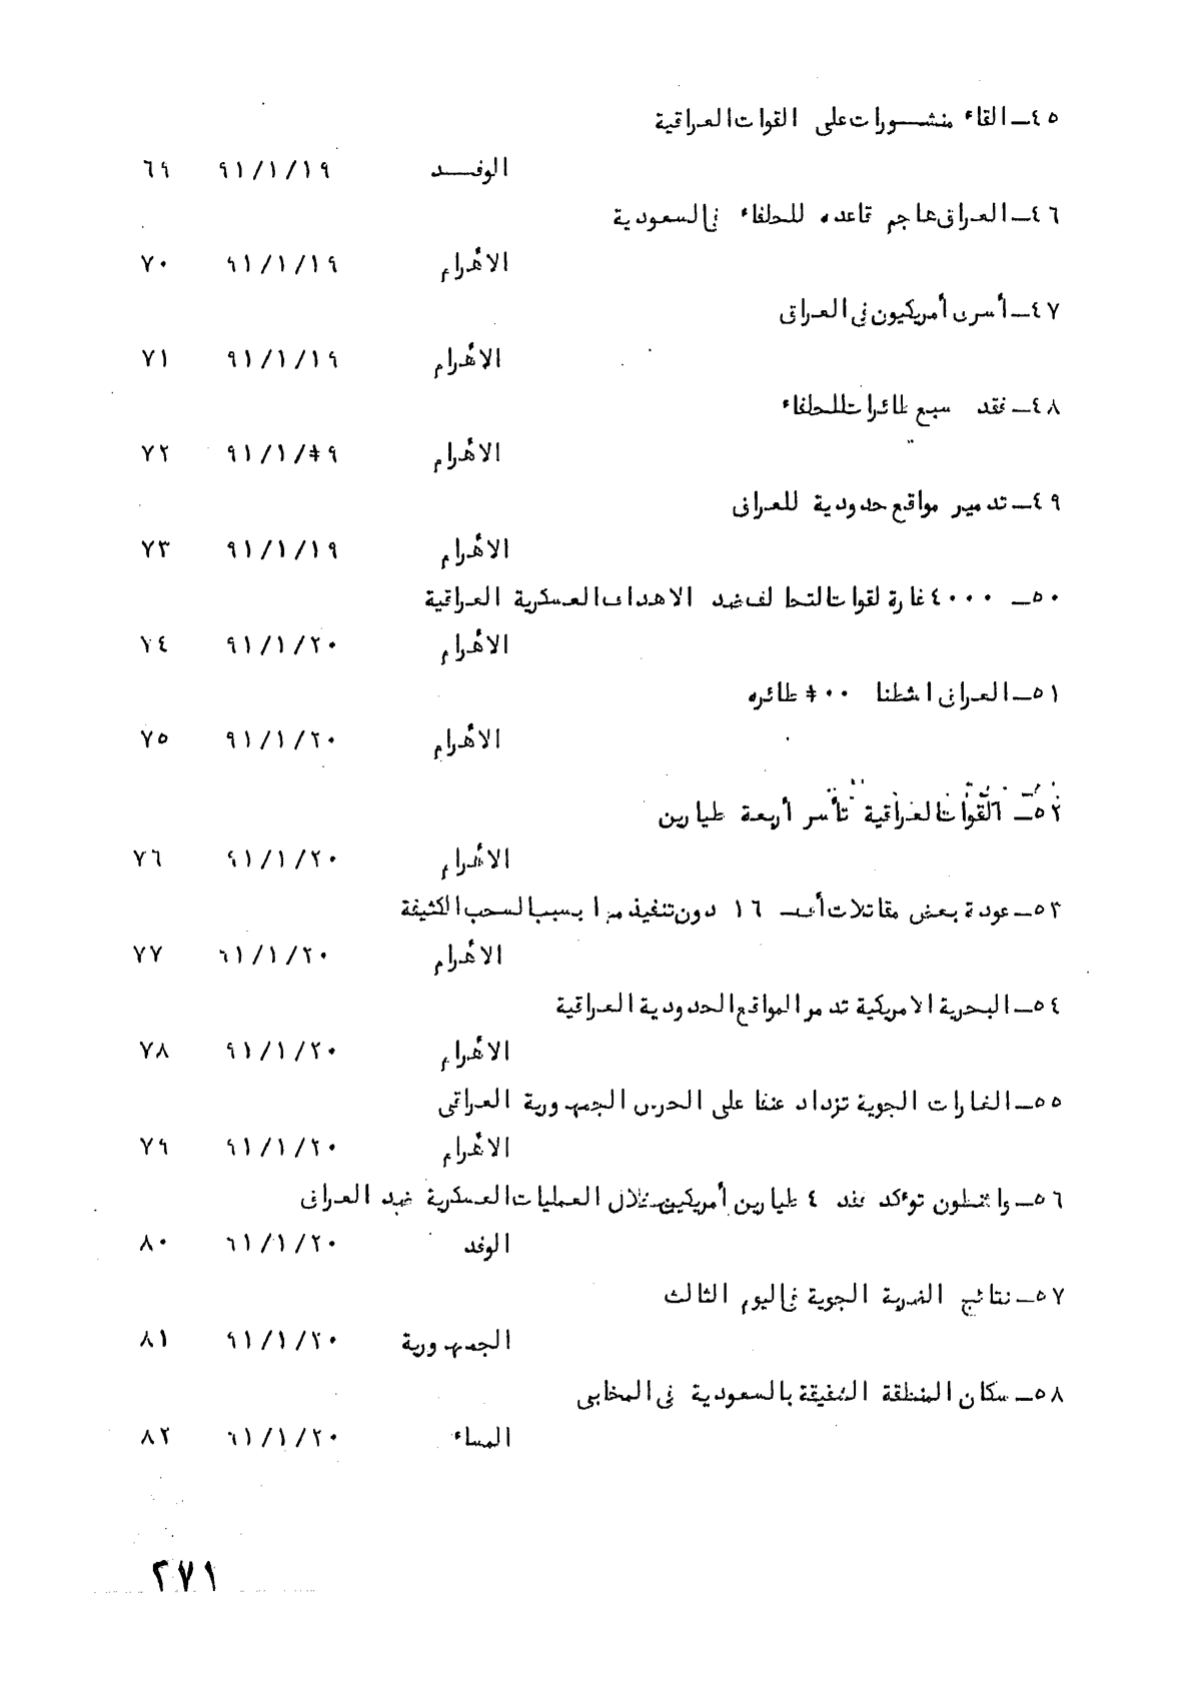 ٤٥ــ القاء منشــورات على القوات العراقية
الوفــد ٩١/١/١٩ ٦٩
٤٦ــ العراق هاجم قاعده للحلفاء فى السعودية
الأهرام ٩١/١/١٩ ٧٠
٤٧ــ أسرى أمريكيون فى العراق
الأهرام ٩١/١/١٩ ٧١
٤٨ــ فقد سبع طائرات للحلفاء
الأهرام ٩١/١/١٩ ٧٢
٤٩ــ تدمير مواقع حدودية للعراق
الأهرام ٩١/١/١٩ ٧٣
٥٠ــ ٤٠٠٠ غارة لقوات التحالف ضد الاهداف العسكرية العراقية
الأهرام ٩١/١/٢٠ ٧٤
٥١ــ العراق ٠٠ طائره
الأهرام ٩١/١/٢٠ ٧٥
٥٢ــ القوات العراقية تأسر أربعة طيارين
الأهرام ٩١/١/٢٠ ٧٦
٥٣ــ عودة بعض مقاتلات أفــ ١٦ دون تنفيذ مهامها بسبب السحب الكثيفة
الأهرام ٩١/١/٢٠ ٧٧
٥٤ــ البحرية الامريكية تدمر المواقع الحدودية العراقية
الأهرام ٩١/١/٢٠ ٧٨
٥٥ــ الغارات الجوية تزداد عنفا على الحرس الجمهورية العراقى
الأهرام ٩١/١/٢٠ ٧٩
٥٦ــ واشنطون توٴكد فقد ٤ طيارين أمريكيين خلال العمليات العسكرية ضد العراق
الوفد ٩١/١/٢٠ ٨٠
٥٧ــ نتائج الضربة الجوية فى اليوم الثالث
الجمهورية ٩١/١/٢٠ ٨١
٥٨ــ سكان المنطقة بالسعودية فى المخابى
المساء ٩١/١/٢٠ ٨٢
٢٧١